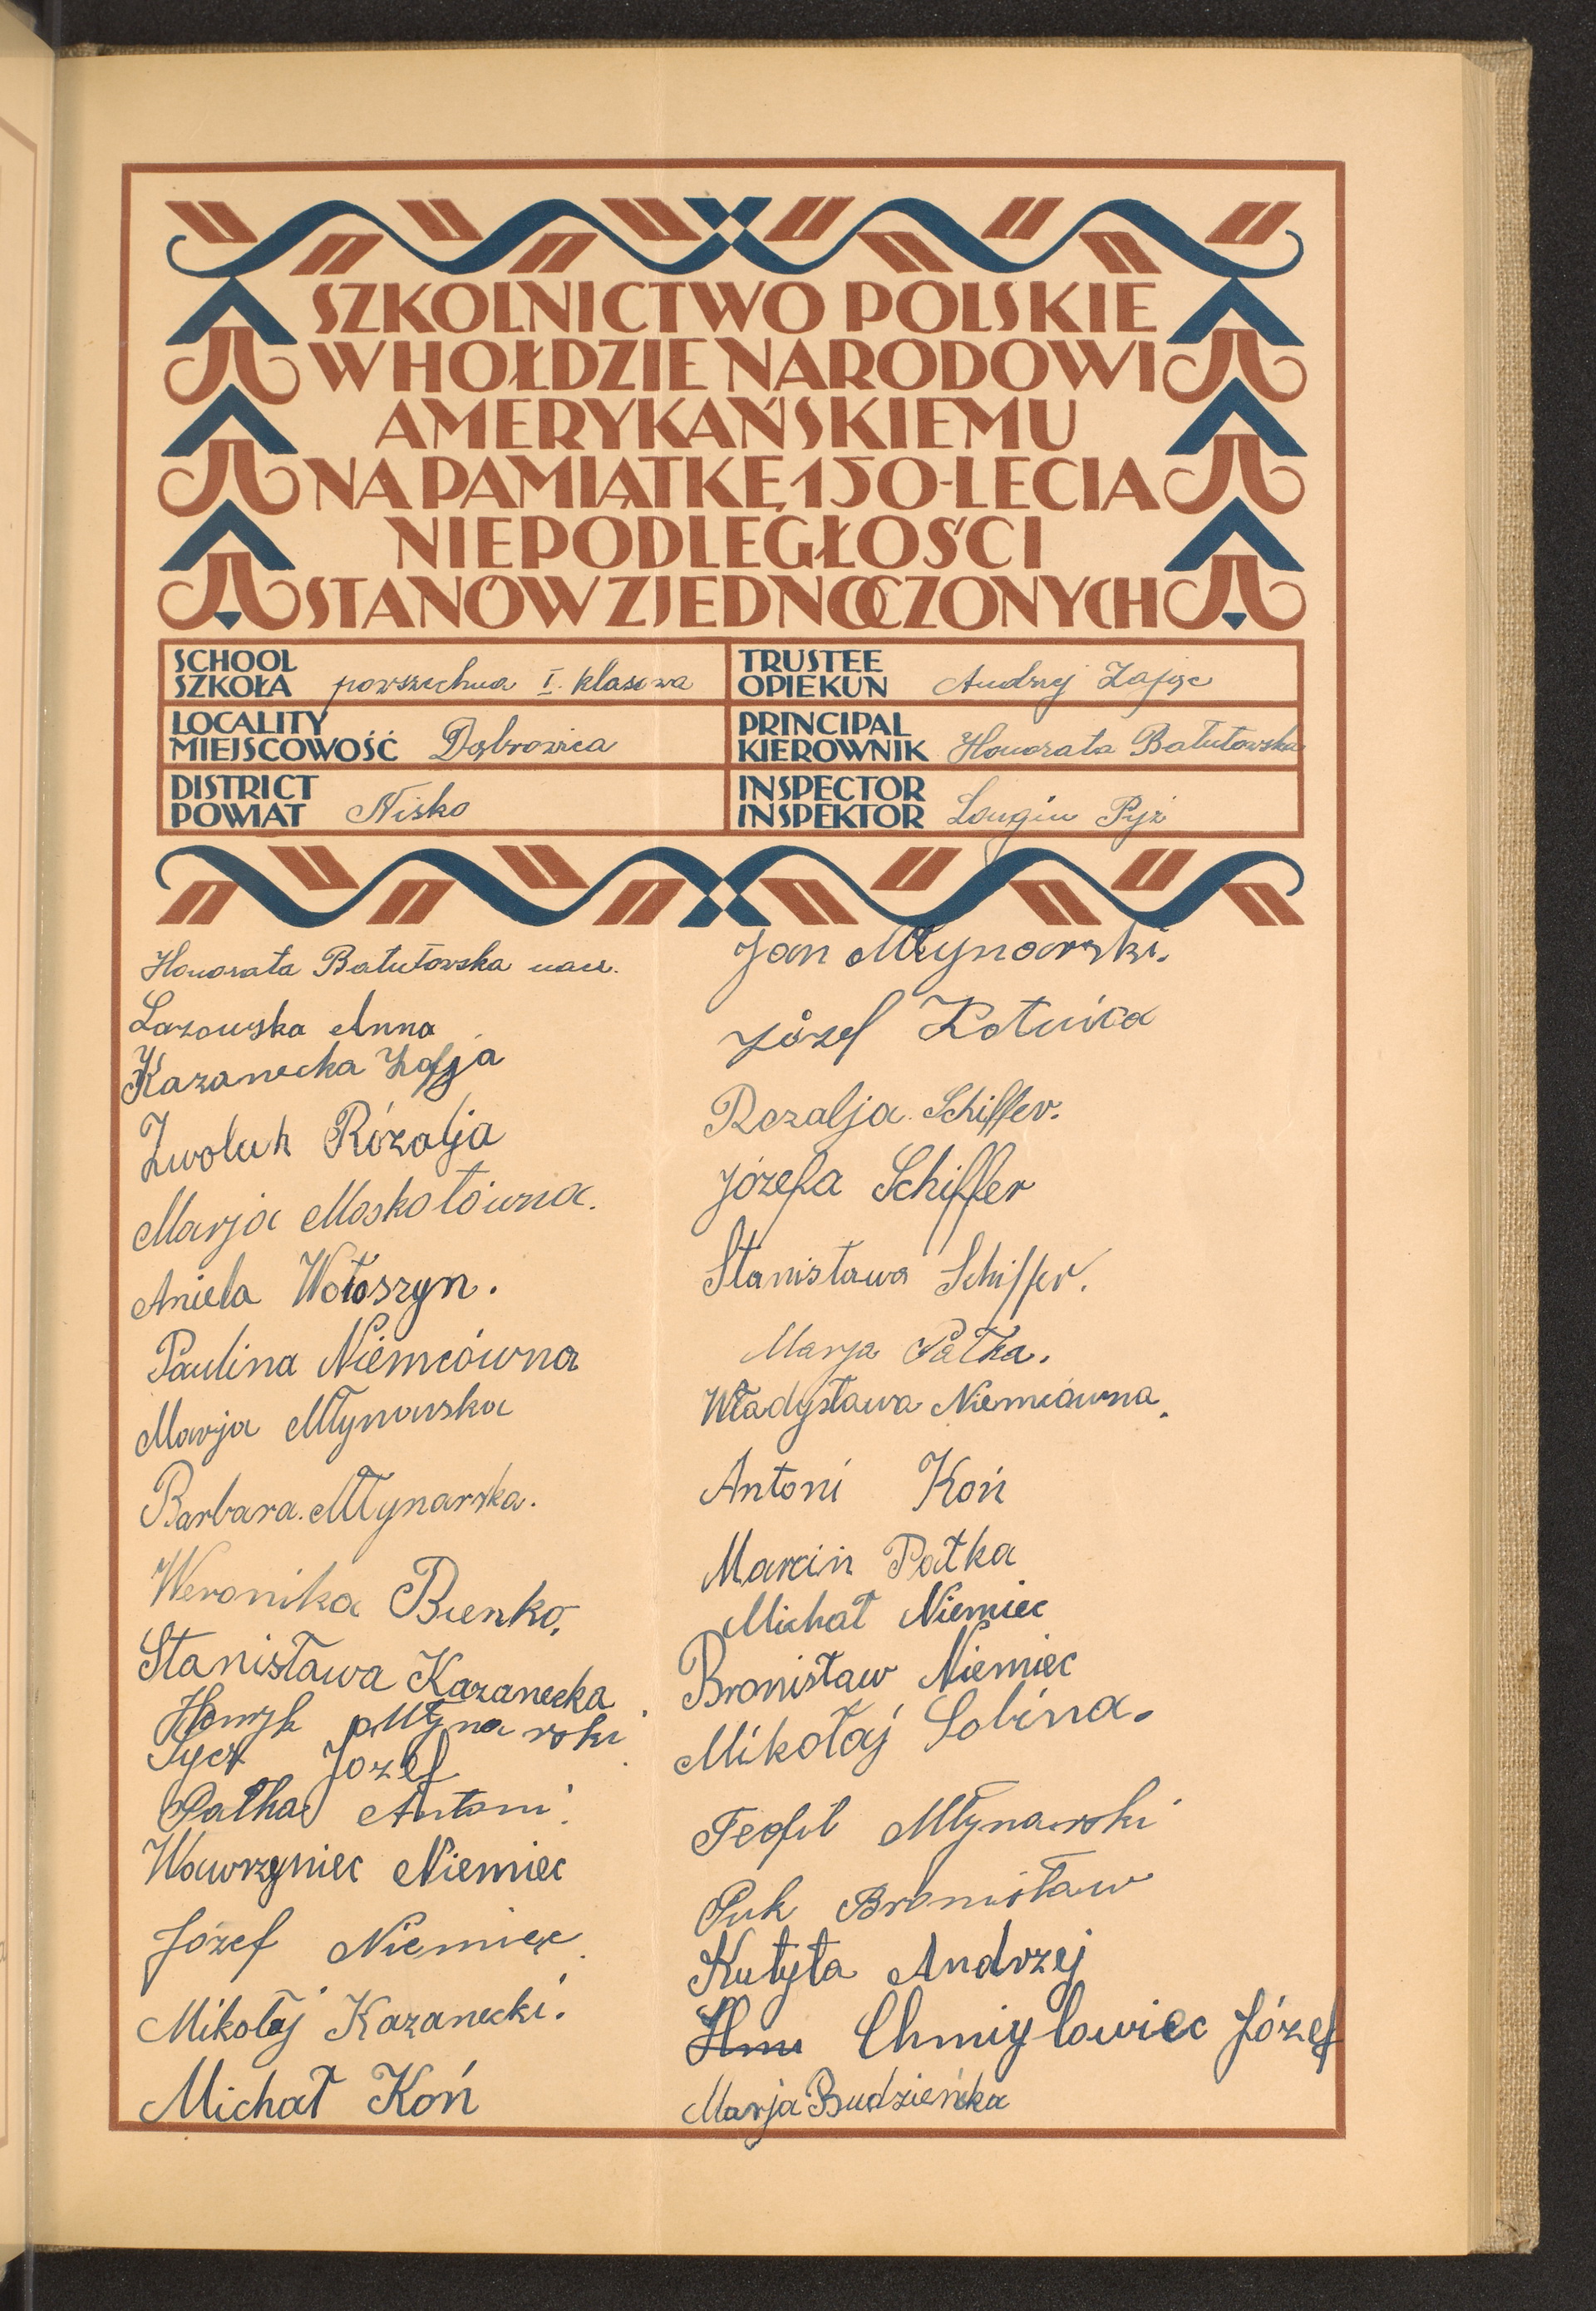 SZKOLNICTWO POLSKIE
W HOŁDZIE NARODOWI
AMERYKAŃSKIEMU
NA PAMIĄTKĘ 150-LECIA
NIEPODLEGŁOŚCI
STANÓW ZJEDNOCZONYCH
SCHOOL
SZKOŁA powszechna I. klasowa
TRUSTEE
OPIEKUN Andrzej Zając
LOCALITY
MIEJSCOWOŚĆ Dąbrowica
PRINCIPAL
KIEROWNIK Honorata Batutowska
DISTRICT
POWIAT Nisko
INSPECTOR
INSPEKTOR Longin Pyż
Honorata Batutowska nau.
Lazowska Anna
Kazanecka Zofja
Zwoluk Rózalja
Marja Moskotówna.
Aniela Wołoszyn.
Paulina Niemcówna
Marja Młynarska
Barbara. Młynarska.
Weronika Bieńko.
Stanisława Kazanecka
Henryk Młynarski
Józef
Pałka Antoni.
Wawrzyniec Niemiec
Józef Niemiec.
Mikołaj Kazanecki.
Michał Koń
Jan Młynarski.
Józef Kotwica
Rozalja. Schiffer.
Józefa Schiffer
Stanisława Schiffer.
Marja Pałka.
Władysława Niemcówna.
Antoni Koń
Marcin Pałka
Michał Niemiec
Bronisław Niemiec
Mikołaj Sobina.
Teofil Młynarski
Puk Bronisław
Kutyła Andrzej
Chmiylowiec Józef
Marja Budzieńka